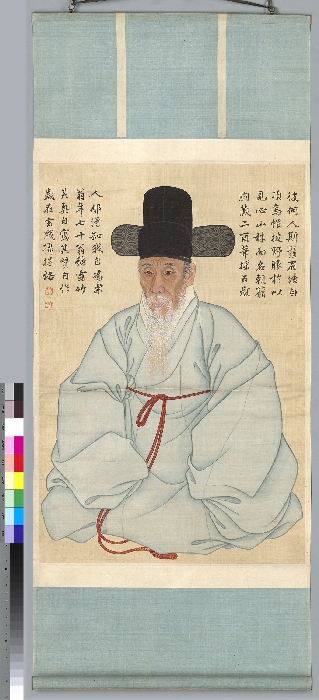 彼何人斯鬚眉晧白
頂烏帽披野服於以
見心山林而名朝籍
胸藏二酉筆搖五嶽
人那得知我自爲樂
翁年七十翁號露竹
其眞自寫其贊自作
歲在玄黓攝提格